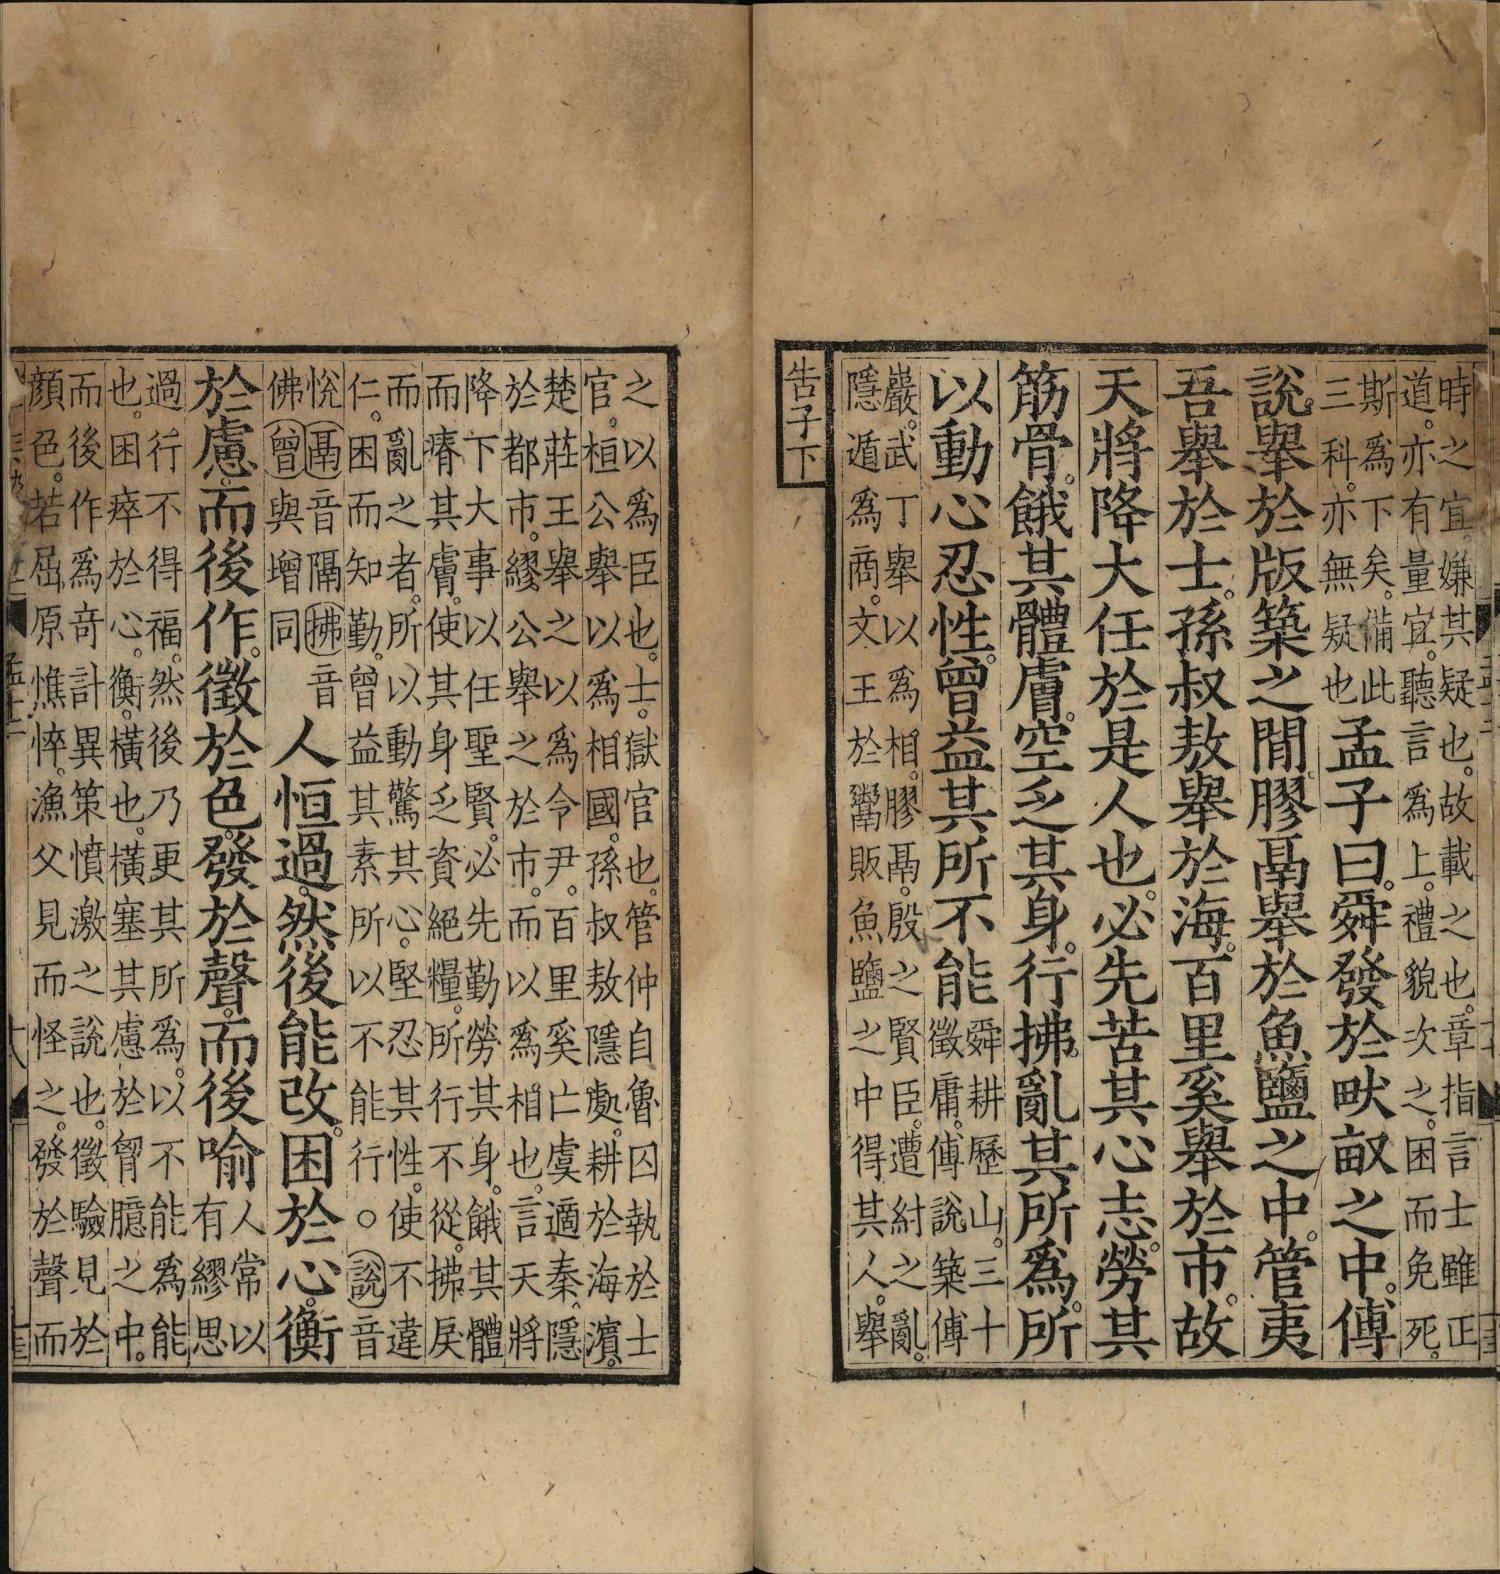 時之宜。嫌其疑也。故載之也。章指言士雖正
道。亦有量宜。聽言爲上。禮貌次之。困而免死。
斯爲下矣。備此
三科。亦無疑也
孟子曰。舜發於畎畝之中。傅
說。舉於版築之閒。膠鬲舉於魚鹽之中。管夷
吾舉於士。孫叔敖舉於海。百里奚舉於市。故
天將降大任於是人也。必先苦其心志。勞其
筋骨。餓其體膚。空乏其身。行拂。亂其所爲。所
以動心忍性。曾益其所不能
舜耕歷山。三十
徵庸。傅說築傅
巖。武丁舉以爲相。膠鬲。殷之賢臣。遭紂之亂。
隱遁爲商。文王於鬻販魚鹽之中得其人。舉
告子下
之以爲臣也。士。獄官也。管仲自魯囚執於士
官。桓公舉以爲相國。孫叔敖隱處。耕於海濱。
楚莊王舉之以爲令尹。百里奚亡虞適秦。隱
於都市。繆公舉之於市。而以爲相。也。言天將
降下大事以任聖賢。必先勤勞其身。餓其體
而瘠其膚。使其身乏資絕糧。所行不從。拂戾
而亂之者。所以動驚其心。堅忍其性。使不違
仁。困而知勤。曾益其素所以不能行。○說音
悅鬲音隔拂音
佛曾與增同
人恒過。然後能改。困於心。衡
於慮。而後作。徵於色。發於聲。而後喻
人常以
有繆思
過行不得福。然後乃更其所爲。以不能爲能
也。困瘁於心。衡。橫也。橫塞其慮於胷臆之中。
而後作爲奇計異策憤激之說也。徵驗見於
顏色。若屈原憔悴。漁父見而怪之。發於聲而